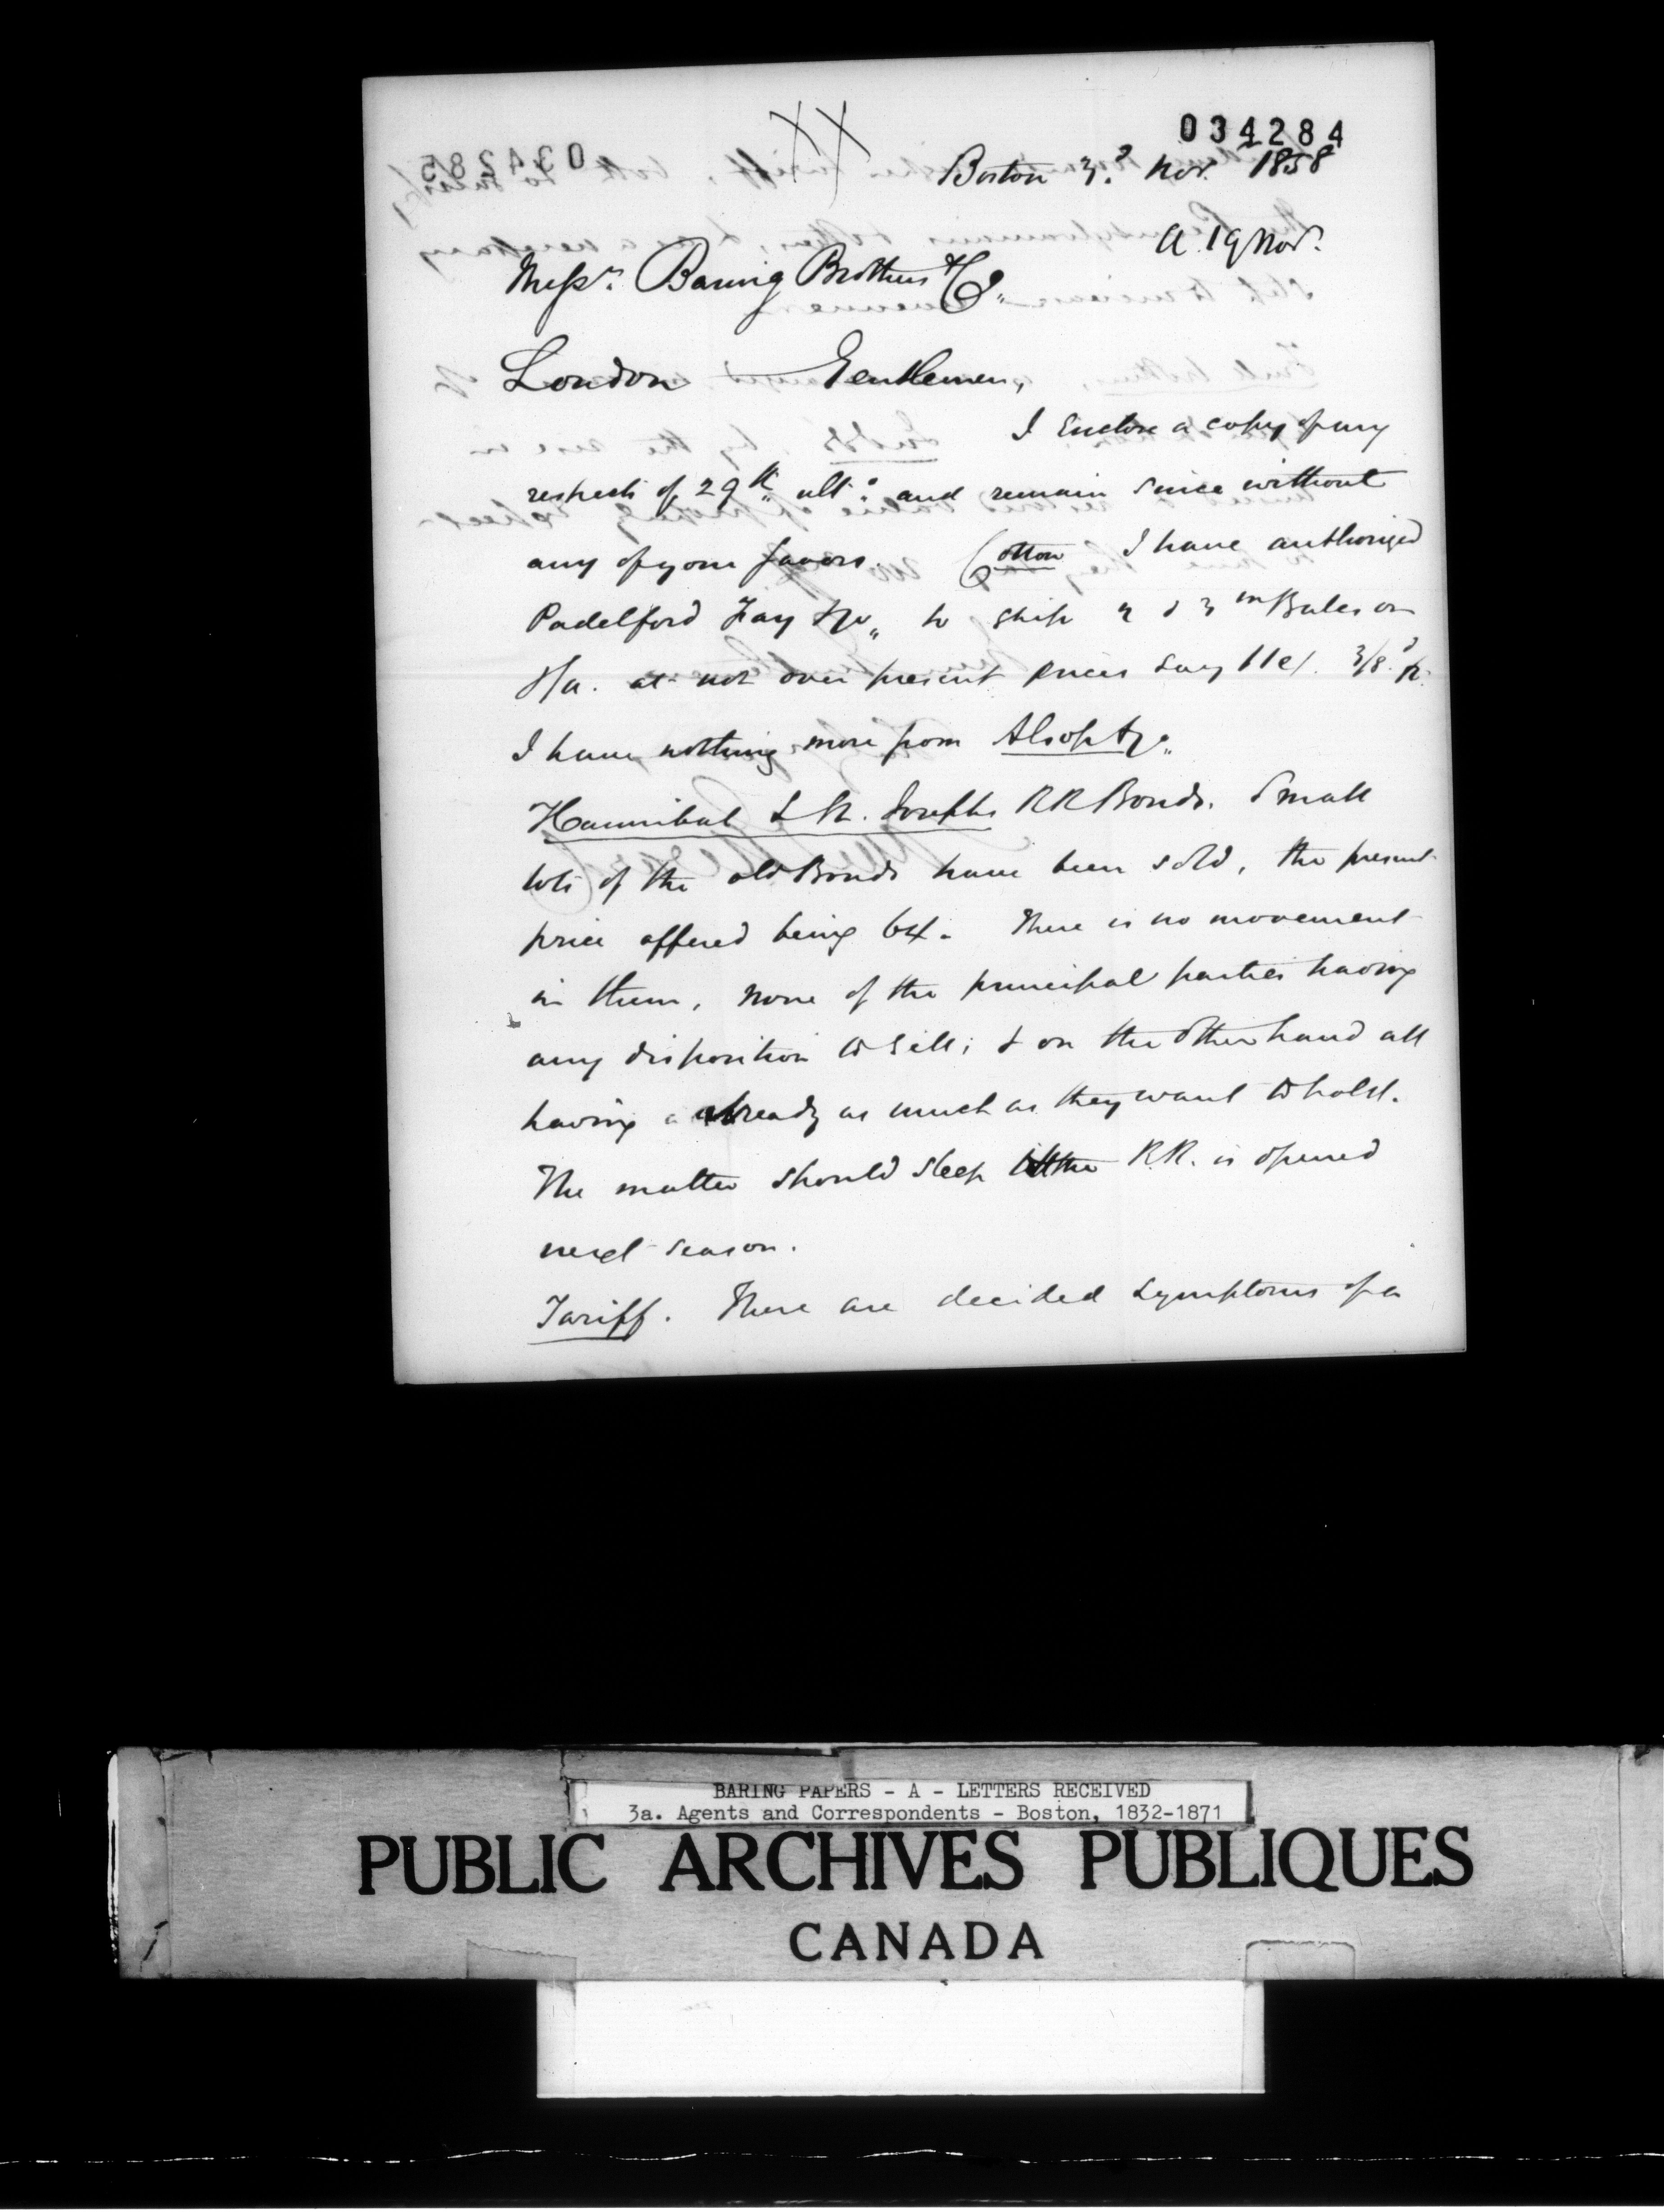 034284
Boston 3d Nov. 1858
A. 19 Nov.
Messrs. Baring Brothers & Co.
London Gentlemen,
I Enclose a copy of my
respects of 29th ulto: and remain since without
any of your favors. Cotton I have authorized
Padelford Fay & Co. to ship 2 & 3 m Bales on
at not over present prices say 11c/. 3/8d
I have nothing more from Alsop & Co.
Hannibal & St. Josephs RR Bonds. Small
lots of the old Bonds have been sold, the present
price offered being 64. There is no movement
in them, none of the principal parties having
any disposition to sell; & on the other hand all
having already as much as they want to hold.
The matter should sleep till the R.R. is opened
next season.
Tariff. There are decided symptoms of a
BARING PAPERS - A - LETTERS RECEIVED
3a. Agents and Correspondents - Boston, 1832-1871
PUBLIC ARCHIVES PUBLIQUES
CANADA